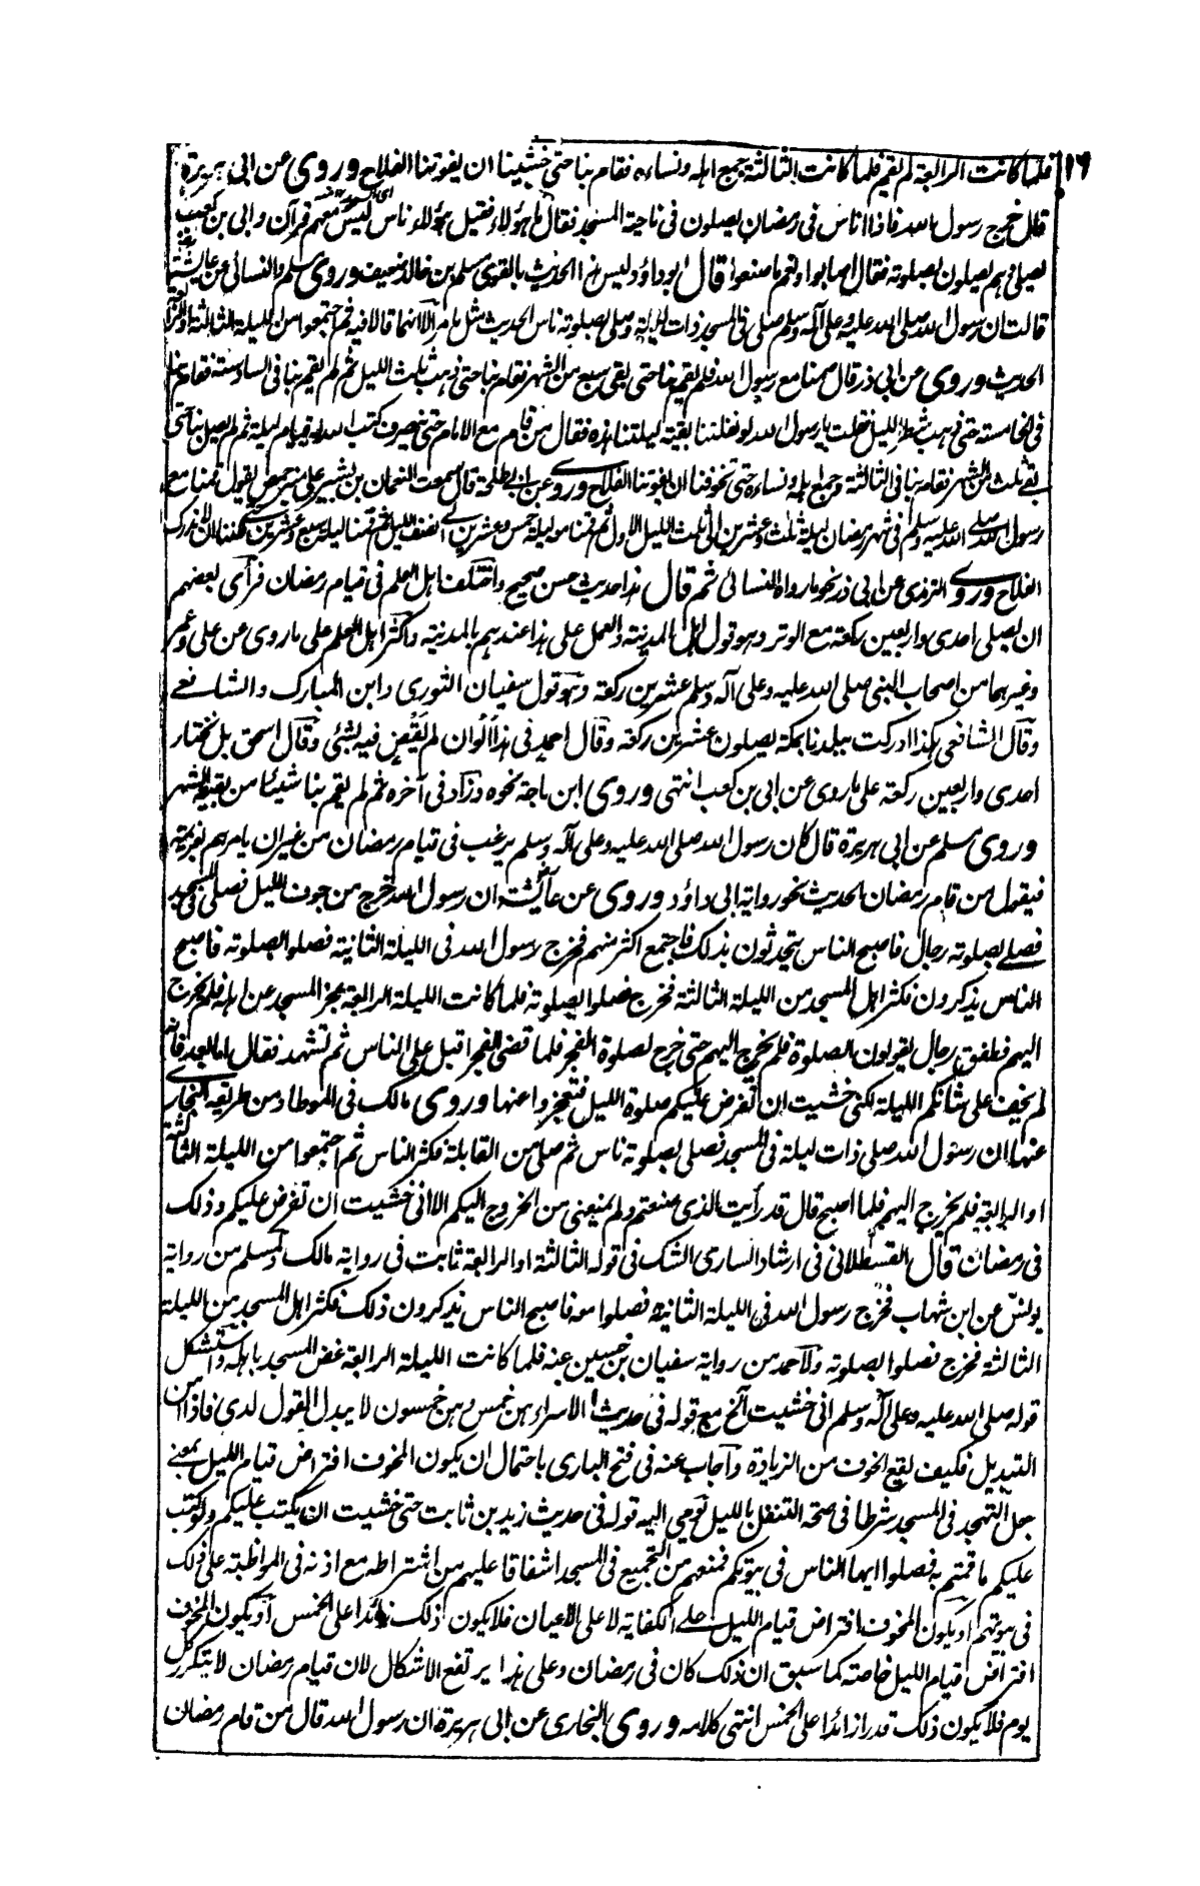 ١٦ فلما كانت الرابعة لم يقم فلما كانت الثالثة جمع اهله ونساءه فقام بنا حتى خشينا ان يفوتنا الفلاح وروى عن ابى هريرة
قال خرج رسول الله فاذا اناس فى رمضان يصلون فى ناحية المسجد فقال ما هؤلاء فقيل هؤلاء ناس ليس معهم قرآن وابى بن كعب
يصلى وهم يصلون بصلوته فقال اصابوا ونعم ما صنعوا قال ابو داؤد ليس هذا الحديث بالقوى مسلم بن خالد ضعيف وروى مسلم والنسائى عن عائشة
قالت ان رسول الله صلى الله عليه وعلى آله وسلم صلى فى المسجد ذات ليلة وصلى بصلوته ناس الحديث مثل ما مر الا انهما قالا فيه ثم اجتمعوا من الليلة الثالثة او الرابعة
الحديث وروى عن ابى ذر قال صمنا مع رسول الله فلم يقم بنا حتى بقى سبع من الشهر فقام بنا حتى ذهب ثلث الليل ثم لم يقم بنا فى السادسة فقام بنا
فى الخامسة حتى ذهب شطر الليل فقلت يا رسول الله لو نفلتنا بقية ليلتنا هذه فقال من قام مع الامام حتى ينصرف كتب الله له قيام ليلة ثم لم يصل بنا حتى
بقى ثلث من الشهر فقام بنا فى الثالثة وجمع اهله ونساءه حتى تخوفنا ان يفوتنا الفلاح وروى عن ابى طلحة قال سمعت النعمان بن بشير على منبر حمص يقول قمنا مع
رسول الله صلى الله عليه وسلم فى شهر رمضان ليلة ثلث وعشرين الى ثلث الليل الاول ثم قمنا معه ليلة خمس وعشرين الى نصف الليل ثم قمنا ليلة سبع وعشرين حتى ظننا ان لا ندرك
الفلاح وروى الترمذى عن ابى ذر نحو ما رواه النسائى ثم قال هذا حديث حسن صحيح واختلف اهل العلم فى قيام رمضان فرأى بعضهم
ان يصلى احدى واربعين ركعة مع الوتر وهو قول اهل المدينة والعمل على هذا عندهم بالمدينة واكثر اهل العلم على ما روى عن على وعمر
وغيرهما من اصحاب النبى صلى الله عليه وعلى آله وسلم عشرين ركعة وهو قول سفيان الثورى وابن المبارك والشافعى
وقال الشافعى هكذا ادركت ببلدنا بمكة يصلون عشرين ركعة وقال احمد فى هذا الوان لم يقض فيه بشئ وقال اسحق بل نختار
احدى واربعين ركعة على ما روى عن ابى بن كعب انتهى وروى ابن ماجة نحوه وزاد فى آخره ثم لم يقم بنا شيئا من بقية الشهر
وروى مسلم عن ابى هريرة قال كان رسول الله صلى الله عليه وعلى آله وسلم يرغب فى قيام رمضان من غير ان يامرهم بعزيمة
فيقول من قام رمضان الحديث نحو رواية ابى داؤد وروى عن عائشة ان رسول الله خرج من جوف الليل فصلى فى المسجد
فصلى بصلوته رجال فاصبح الناس يتحدثون بذلك فاجتمع اكثر منهم فخرج رسول الله فى الليلة الثانية فصلوا بصلوته فاصبح
الناس يذكرون فكثر اهل المسجد من الليلة الثالثة فخرج فصلوا بصلوته فلما كانت الليلة الرابعة عجز المسجد عن اهله فلم يخرج
اليهم فطفق رجال يقولون الصلوة فلم يخرج اليهم حتى خرج لصلوة الفجر فلما قضى الفجر اقبل على الناس ثم تشهد فقال اما بعد فانه
لم يخف على شانكم الليلة لكنى خشيت ان تفرض عليكم صلوة الليل فتعجزوا عنها وروى مالك فى الموطا ومن طريقه البخارى
عنها ان رسول الله صلى ذات ليلة فى المسجد فصلى بصلوته ناس ثم صلى من القابلة فكثر الناس ثم اجتمعوا من الليلة الثالثة
او الرابعة فلم يخرج اليهم فلما اصبح قال قد رأيت الذى صنعتم ولم يمنعنى من الخروج اليكم الا انى خشيت ان تفرض عليكم وذلك
فى رمضان قال القسطلانى فى ارشاد السارى الشك فى قوله الثالثة او الرابعة ثابت فى رواية مالك ولمسلم من رواية
يونس عن ابن شهاب فخرج رسول الله فى الليلة الثانية فصلوا معه فاصبح الناس يذكرون ذلك فكثر اهل المسجد من الليلة
الثالثة فخرج فصلوا بصلوته ولاحمد من رواية سفيان بن حسين عنه فلما كانت الليلة الرابعة غص المسجد باهله واستشكل
قوله صلى الله عليه وعلى آله وسلم انى خشيت الخ مع قوله فى حديث الاسراء هن خمس وهن خمسون لا يبدل القول لدى فاذا امن
التبديل فكيف يقع الخوف من الزيادة واجاب عنه فى فتح البارى باحتمال ان يكون المخوف افتراض قيام الليل بمعنى
جعل التهجد فى المسجد شرطا فى صحة التنفل بالليل ويومى اليه قوله فى حديث زيد بن ثابت حتى خشيت ان يكتب عليكم ولو كتب
عليكم ما قمتم به فصلوا ايها الناس فى بيوتكم فمنعهم من التجميع فى المسجد اشفاقا عليهم من اشتراطه مع اذنه فى المواظبة على ذلك
فى بيوتهم او يكون المخوف افتراض قيام الليل على الكفاية لا على الاعيان فلا يكون ذلك زائدا على الخمس او يكون المخوف
افتراض قيام الليل خاصة كما سبق ان ذلك كان فى رمضان وعلى هذا يرتفع الاشكال لان قيام رمضان لا يتكرر كل
يوم فلا يكون ذلك قدرا زائدا على الخمس انتهى كلامه وروى البخارى عن ابى هريرة ان رسول الله قال من قام رمضان